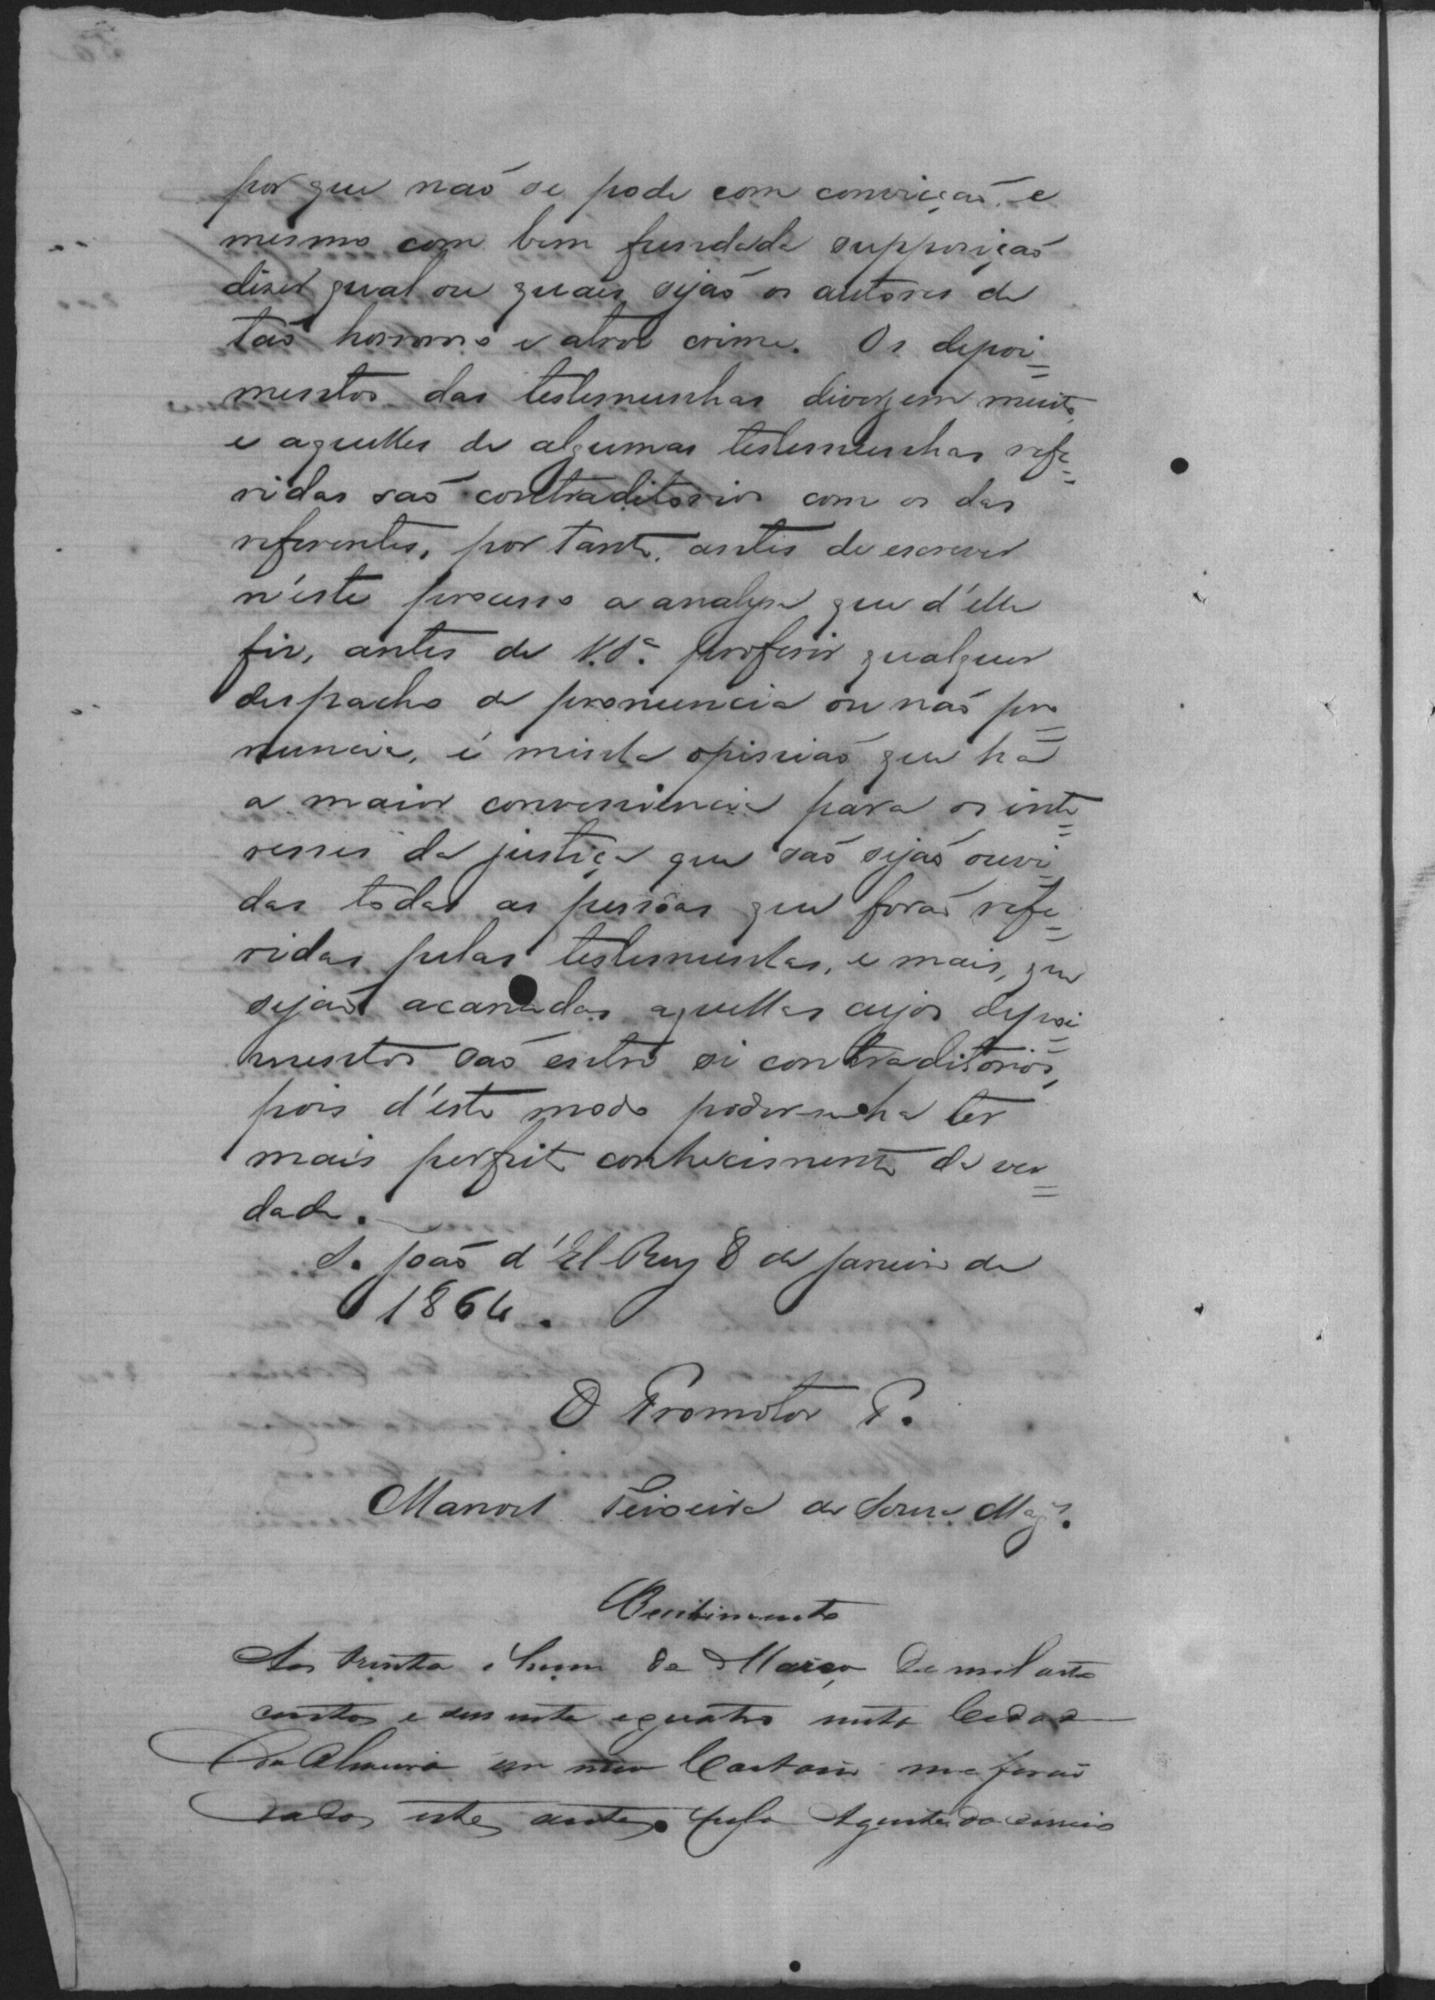 por que naõ se pode com convicçaõ, e
mesmo com bem fundada supposiçaõ
dizer qual ou quaes sejaõ os autores de
taõ horroroso e atroz crime. Os depoi=
mentos das testemunhas divergem muito,
e aquelles de algumas testemunhas refe=
ridas saõ contraditorios com os das
referentes, por tanto, antes de escrever
n'este processo a analyse que d'elle
fiz, antes de V.Sª. proferir qualquer
despacho de pronuncia ou naõ pro=
nuncia, é minha opiniaõ que ha
a maior conveniencia para os inte=
resses da justiça que saõ sejaõ ouvi=
das todas as pessoas que foraõ refe=
ridas pelas testemunhas, e mais, que
sejaõ acareadas aquellas cujos depoi=
mentos saõ entre si contraditorios,
pois d'este modo poder-se-ha ter
mais perfeito conhecimento da ver=
dade.
S. Joaõ d'El-Rey 8 de Janeiro de
1864.
O Promotor P.
Manoel Teixeira de Souza Magᵉˢ.
Recebimento
Aos trinta e hum de Março de mil oito
centos e sessenta e quatro nesta Cidade
em meu Cartorio me foraõ
dados estes autos pelo Agente do Correio